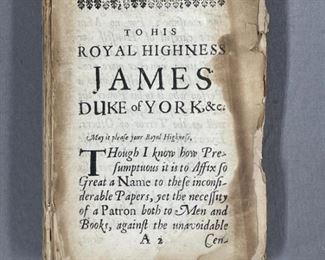 TO HIS
ROYAL HIGHNESS
JAMES
DUKE of YORK, &c.
May it please your Royal Highness,
THough I know how Pre-
sumptuous it is to Affix so
Great a Name to these inconsi-
derable Papers, yet the necessity
of a Patron both to Men and
Books, against the unavoidable
A 2 Cen-